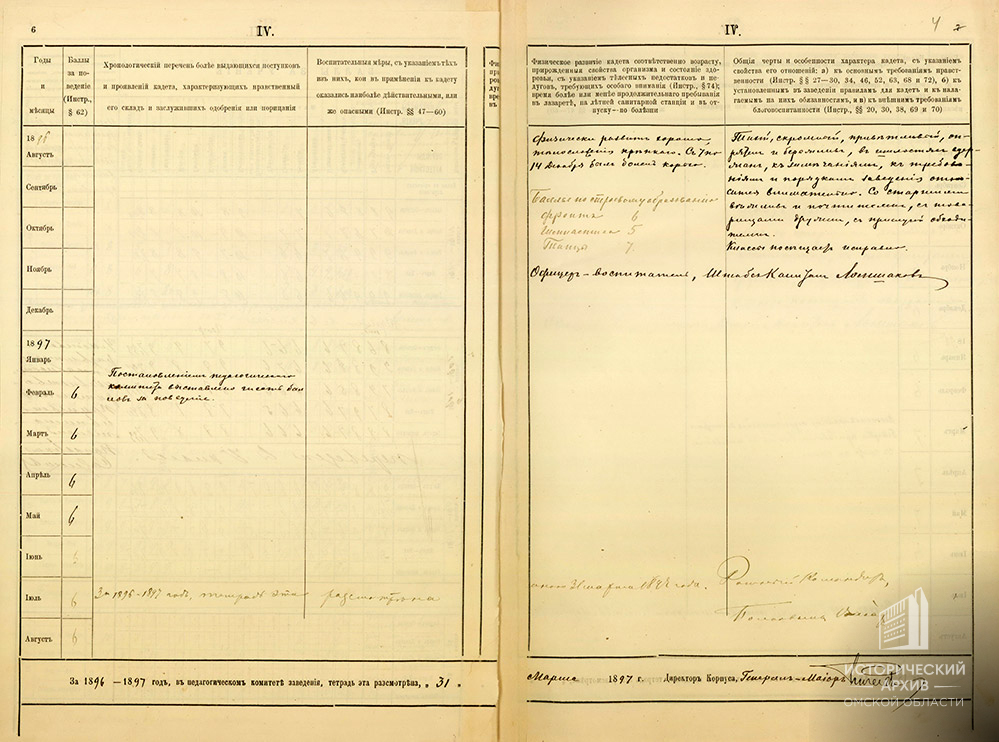 6
IV.
Годы
и
мѣсяцы
Баллы
за по-
веденіе
(Инстр.,
§ 62)
Хронологическій перечень болѣе выдающихся поступковъ
и проявленій кадета, характеризующихъ нравственный
его складъ и заслужившихъ одобренія или порицанія
Воспитательныя мѣры, съ указаніемъ тѣхъ
изъ нихъ, кои въ примѣненіи къ кадету
оказались наиболѣе дѣйствительными, или
же опасными (Инстр. §§ 47—60)
1896
Августъ
Сентябрь
Октябрь
Ноябрь
Декабрь
1897
Январь
Февраль 6
Постановленіемъ педагогическаго
комитета выставлено шесть бал
ловъ за поведеніе.
Мартъ 6
Апрѣль 6
Май 6
Іюнь 6
Іюль 6
За 1896-1897 годъ, тетрадь эта разсмотрѣна
Августъ 6
За 1896—1897 годъ, въ педагогическомъ комитетѣ заведенія, тетрадь эта разсмотрѣна, „31"
IV.
4
Физическое развитіе кадета соотвѣтственно возрасту,
прирожденныя свойства организма и состояніе здо-
ровья, съ указаніемъ тѣлесныхъ недостатковъ и не-
дуговъ, требующихъ особаго вниманія (Инстр., § 74);
время болѣе или менѣе продолжительнаго пребыванія
въ лазаретѣ, на лѣтней санитарной станціи и въ от-
пуску— по болѣзни
Общія черты и особенности характера кадета, съ указаніемъ
свойства его отношеній: а) къ основнымъ требованіямъ нравст-
венности (Инстр. §§ 27—30, 34, 46, 52, 63, 68 и 72), б) къ
установленнымъ въ заведеніи правиламъ для кадетъ и къ нала-
гаемымъ на нихъ обязанностямъ, и в) къ внѣшнимъ требованіямъ
благовоспитанности (Инстр., §§ 20, 30, 38, 69 и 70)
Физически развитъ хорошо,
тѣлосложенія крѣпкаго. Съ 7 по
14 Декабря былъ боленъ корью.
Баллы по строевому образованію
фронтъ 6
Гимнастика 5
Танцы 7.
Тихій, скромный, привѣтливый, оп-
рятенъ и бережливъ, въ шалостяхъ сдер-
жанъ, къ замѣчаніямъ, къ требова-
ніямъ и порядкамъ заведенія отно-
сится внимательно. Со старшими
вѣжливъ и почтителенъ, съ това-
рищами друженъ, съ прислугой обходи-
теленъ.
Классы посѣщаетъ исправно.
Офицеръ-воспитатель, Штабсъ-Капитанъ
31 марта 1897 года. Ротный Командиръ,
Марта 1897 г. Директоръ Корпуса, Генералъ-Маіоръ
ИСТОРИЧЕСКИЙ
АРХИВ
ОМСКОЙ ОБЛАСТИ